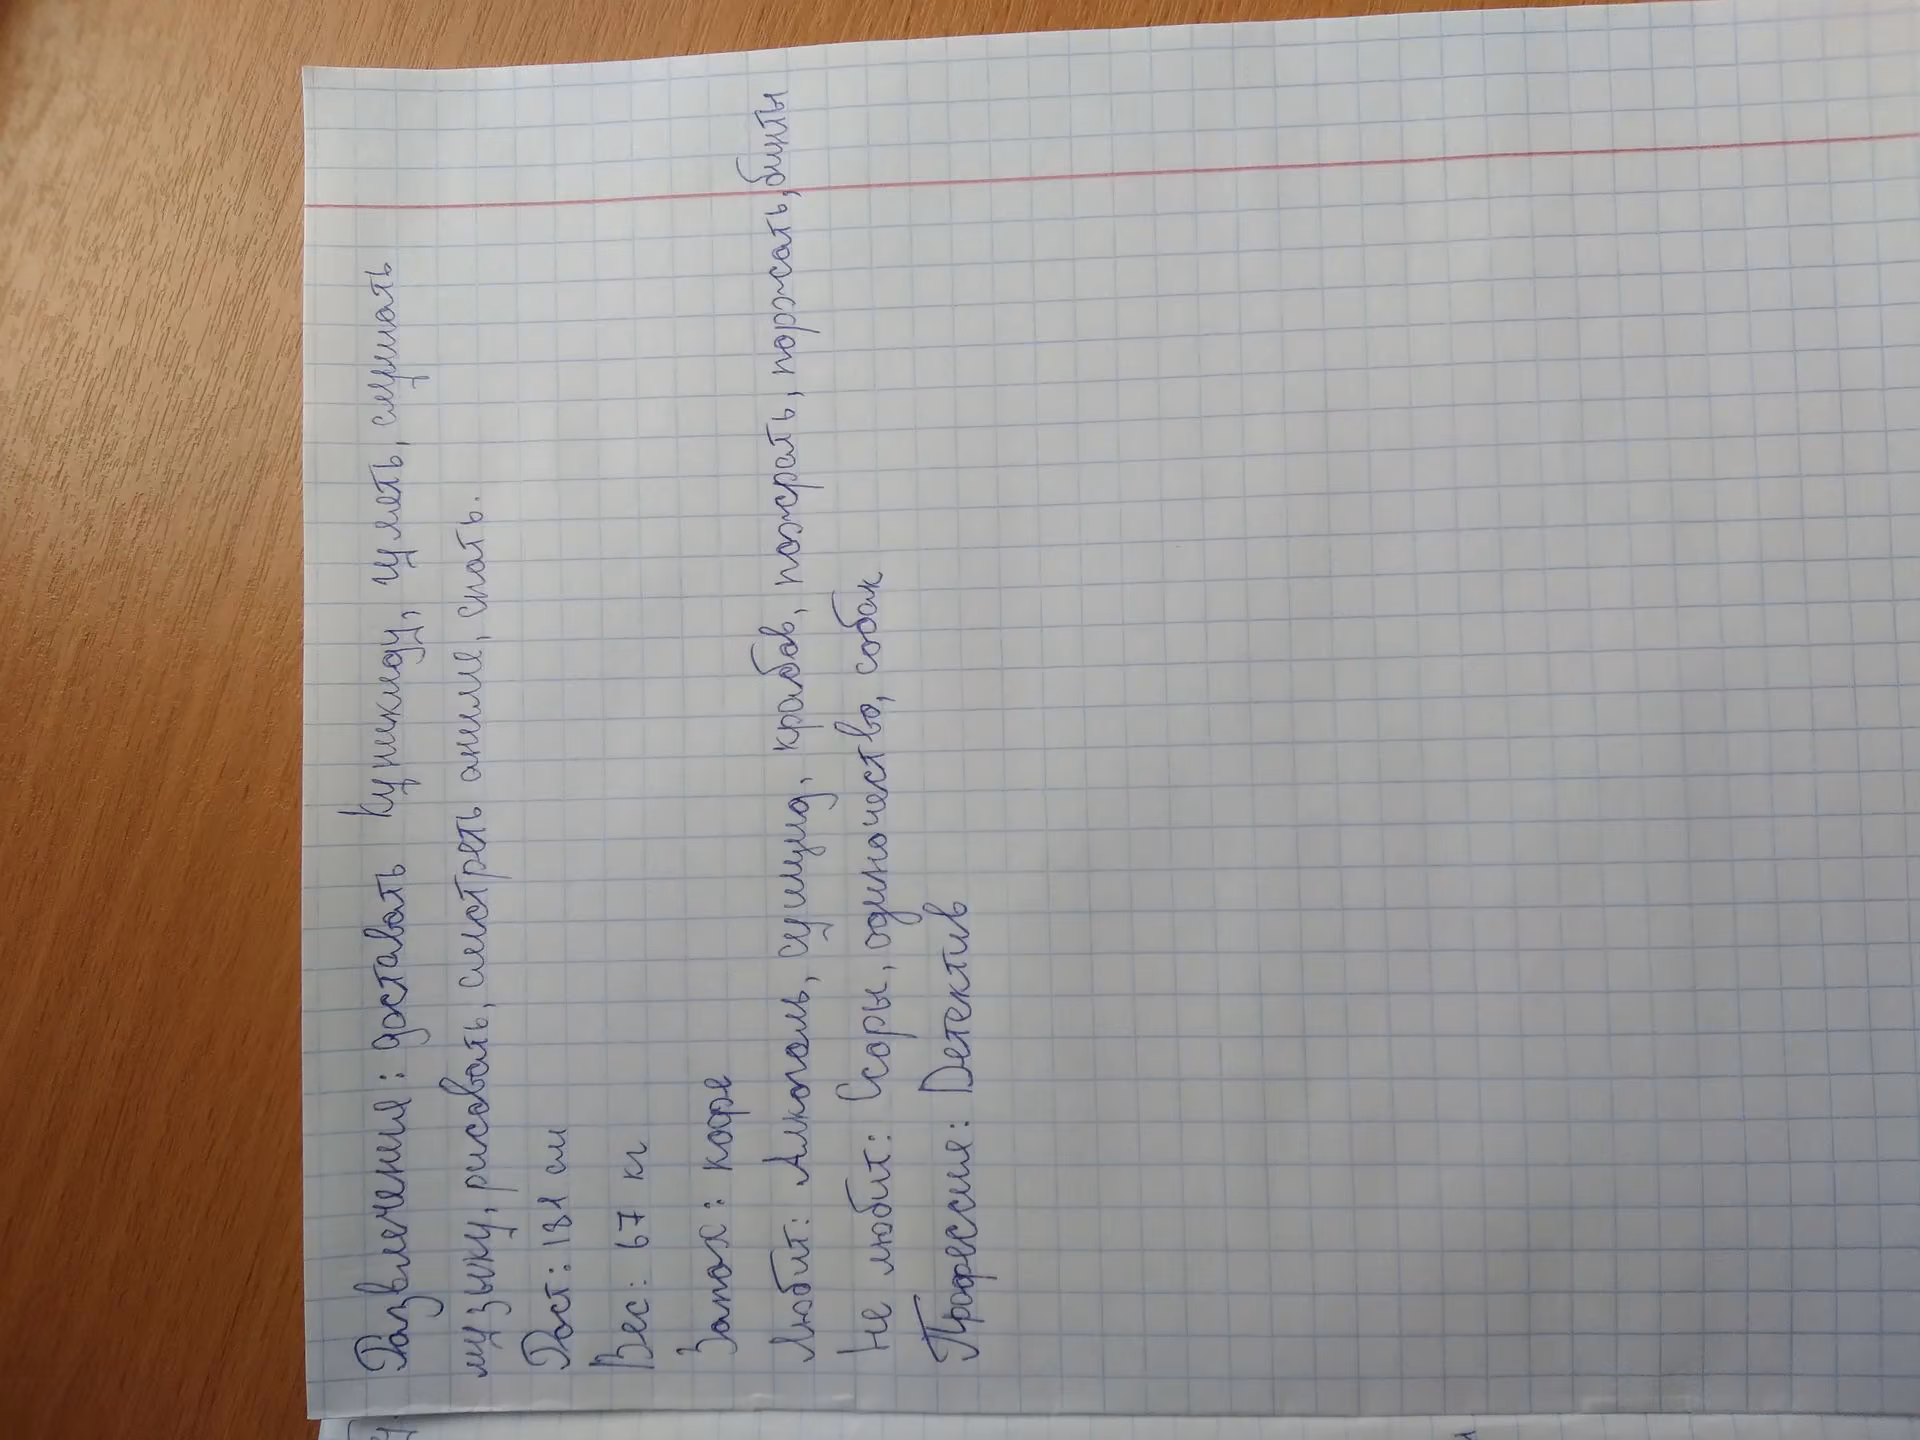 Развлечения: доставать Куникиду, гулять, слушать
музыку, рисовать, смотреть аниме, спать.
Рост: 181 см
Вес: 67 кг
Запах: кофе
Любит: Алкоголь, суицид, крабов, пожрать, поржать, бинты
Не любит: Ссоры, одиночество, собак
Профессия: Детектив